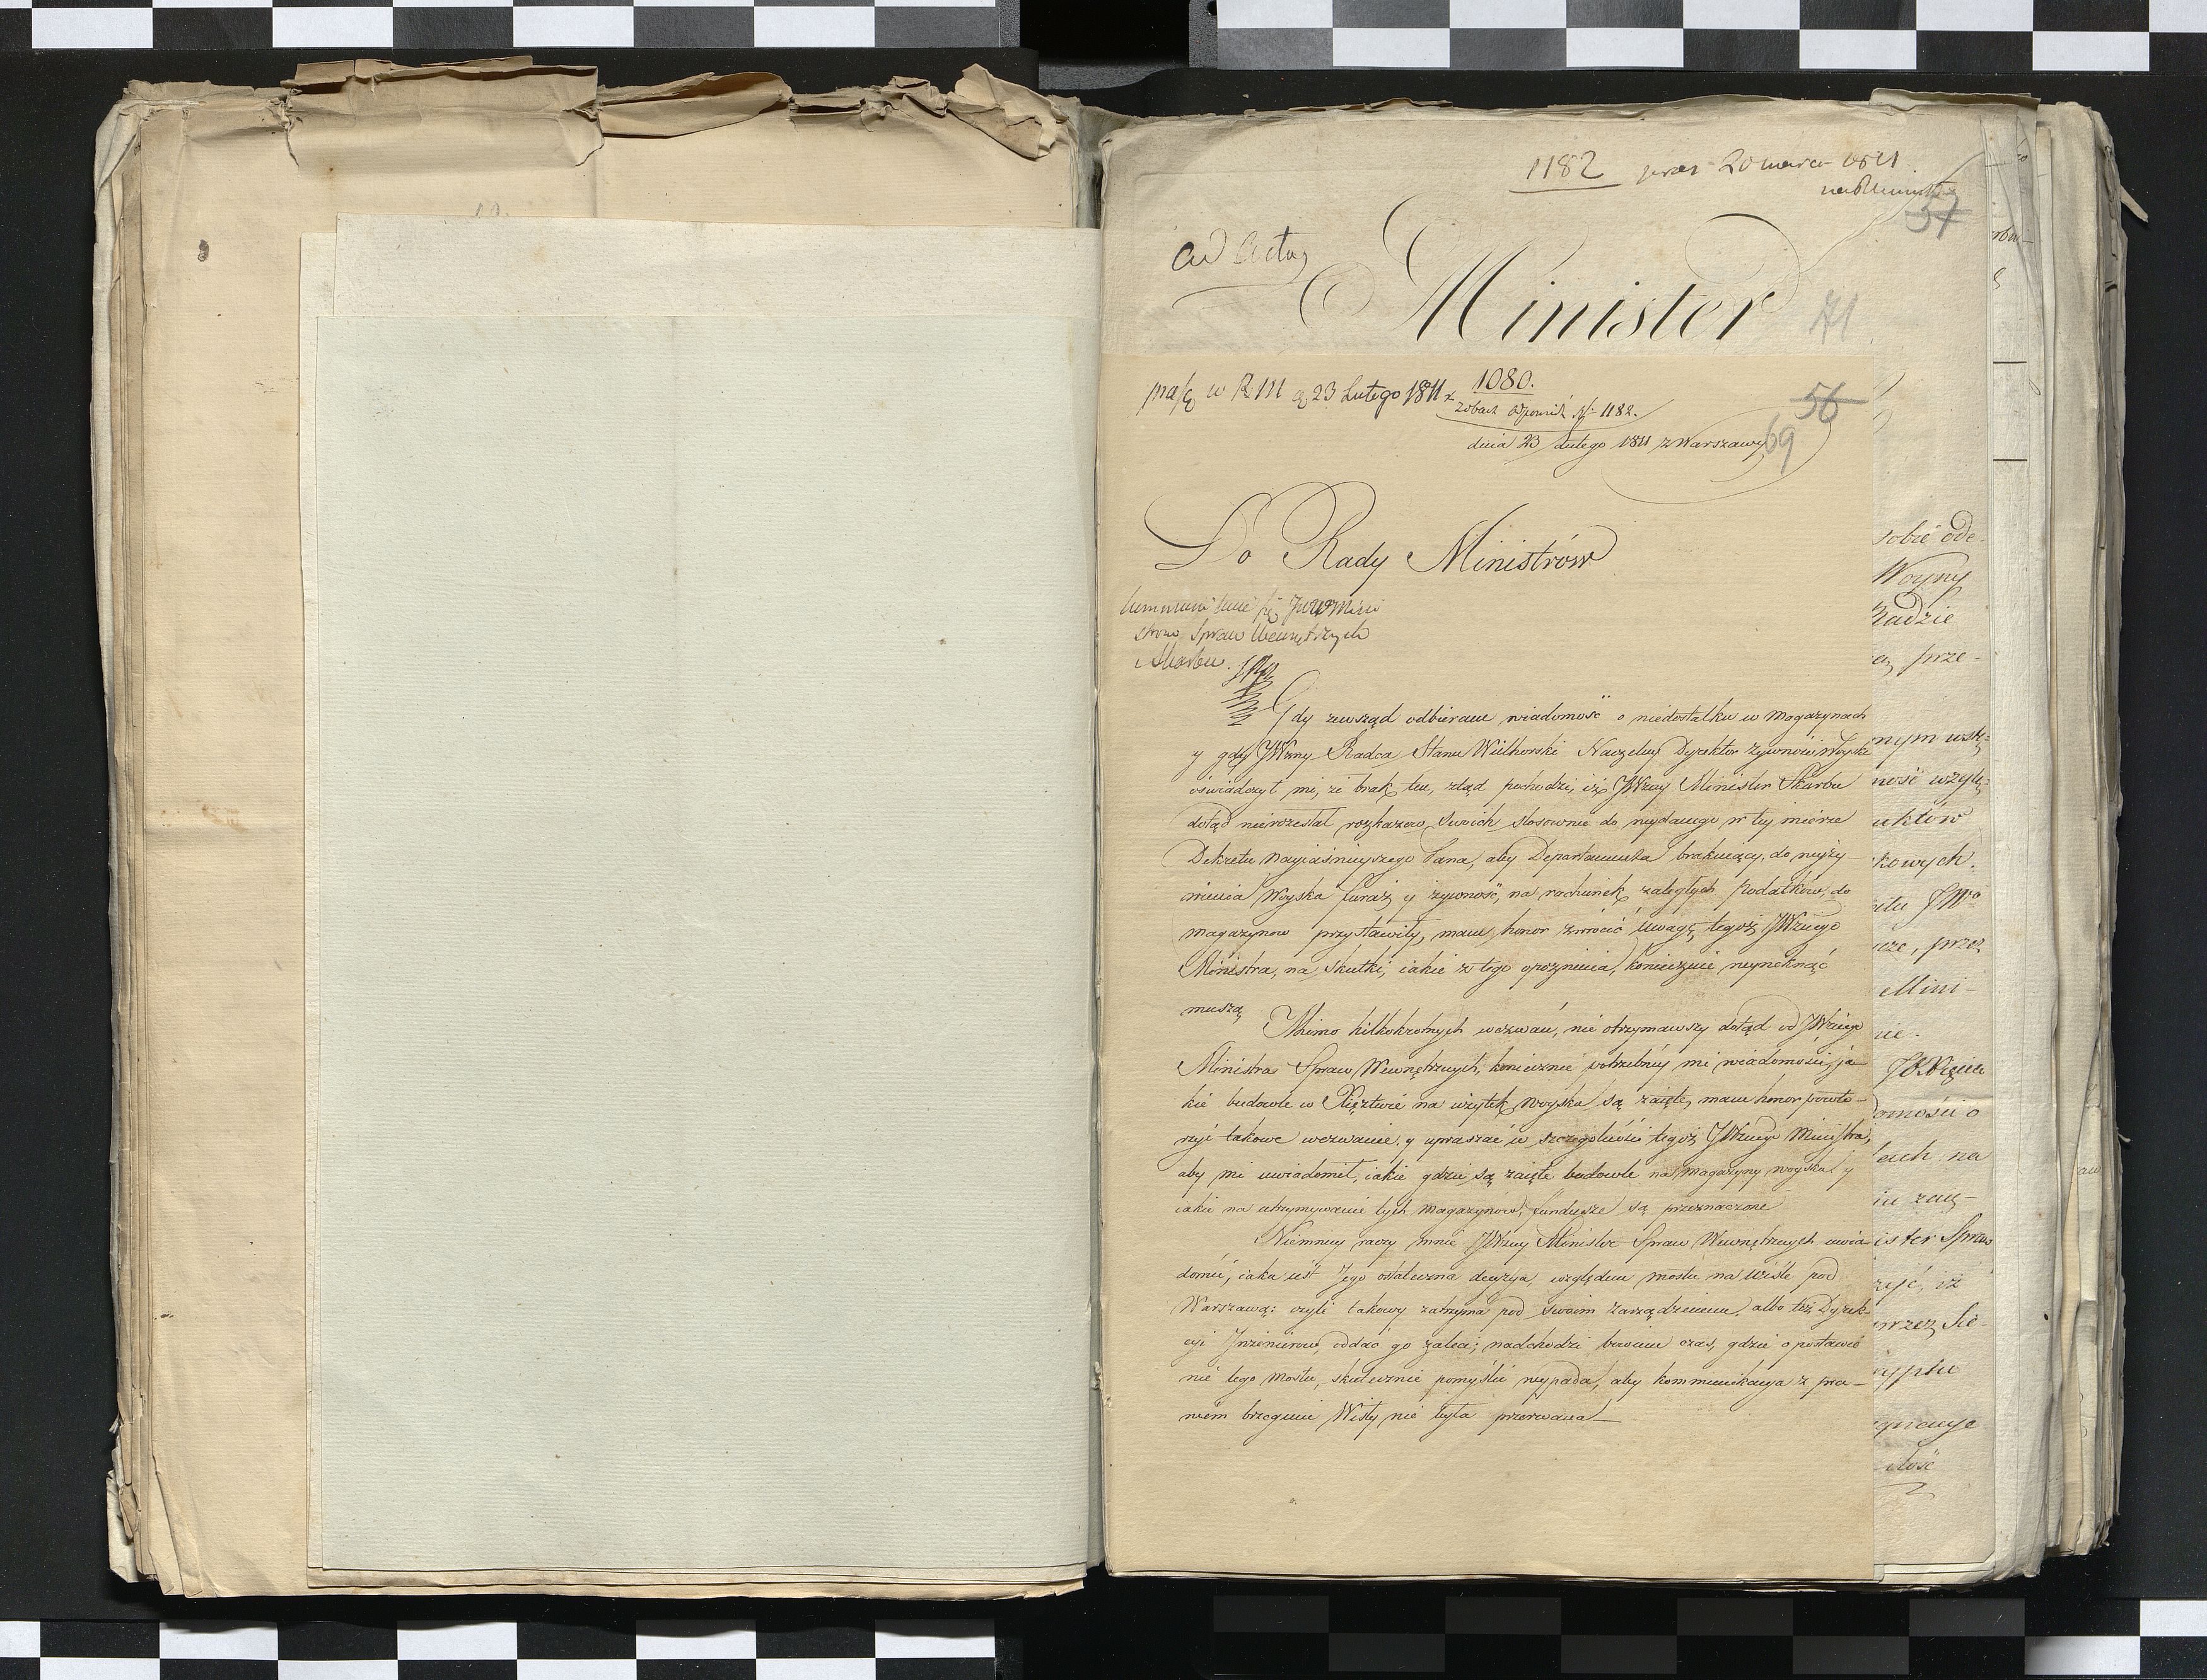 1182 prez 20 marca 1811
57
ad acta
Minister
71
w RM d 23 Lutego 1811 r 1080.
zobacz odpowiedź N: 1182.
56
dnia 23 Lutego 1811 z Warszawy
69
Do Rady Ministrów
się JWW Mini
strow Spraw Wewnętrznych
i Skarbu.
Gdy zewsząd odbieram wiadomość o niedostatku w Magazynach
y gdy JWzny Radca Stanu Wielhorski Naczelny Dyrektor żywności Woyska
oświadczył mi, że brak ten, ztąd pochodzi, iż JWzny Minister Skarbu
dotąd nierozesłał rozkazow swoich stosownie do wydanego w tey mierze
Dekretu Nayiaśnieyszego Pana, aby Departamenta brakuiący, do wyży-
wienia Woyska furaż y żywność, na rachunek zaległych Podatków, do
magazynow przystawiły, mam honor zwrócić uwagę tegoż JWznego
Ministra, na skutki, iakie z tego opoznienia, koniecznie wyniknąć
muszą
Mimo kilkokrotnych wezwań, nie otrzymawszy dotąd od JWznego
Ministra Spraw Wewnętrznych, koniecznie potrzebney mi wiadomości, ja-
kie budowle w Xięztwie na użytek woyska są zaięte, mam honor powto-
rzyć takowe wezwanie, y upraszać w szczegolności tegoż JWznego Ministra,
aby mi uwiadomił, iakie gdzie są zaięte budowle na magazyny woyska y
iakie na utrzymywanie tych magazynów, fundusze są przeznaczone
Niemniey raczy mnie JWzny Minister Spraw Wewnętrznych uwia-
domić, iaka iest Jego ostateczna decyzya, względem mostu na Wiśle pod
Warszawą: czyli takowy zatrzyma pod swoim zarządzeniem, albo też Dyrek-
cyi Jnżenierow, oddać go zaleci; nadchodzi bowiem czas, gdzie o postawie
nie tego mostu, skutecznie pomyślić wypada, aby kommunikacya z pra-
wem brzegiem Wisły nie była przerwana
sobie ode-
Woyny
Radzie
prze-
nym
ność
uktów
kowych.
JWo
przez
Mini-
nie.
JWżnem
domości o
ach na
ister Spraw
iż
przez
ilość